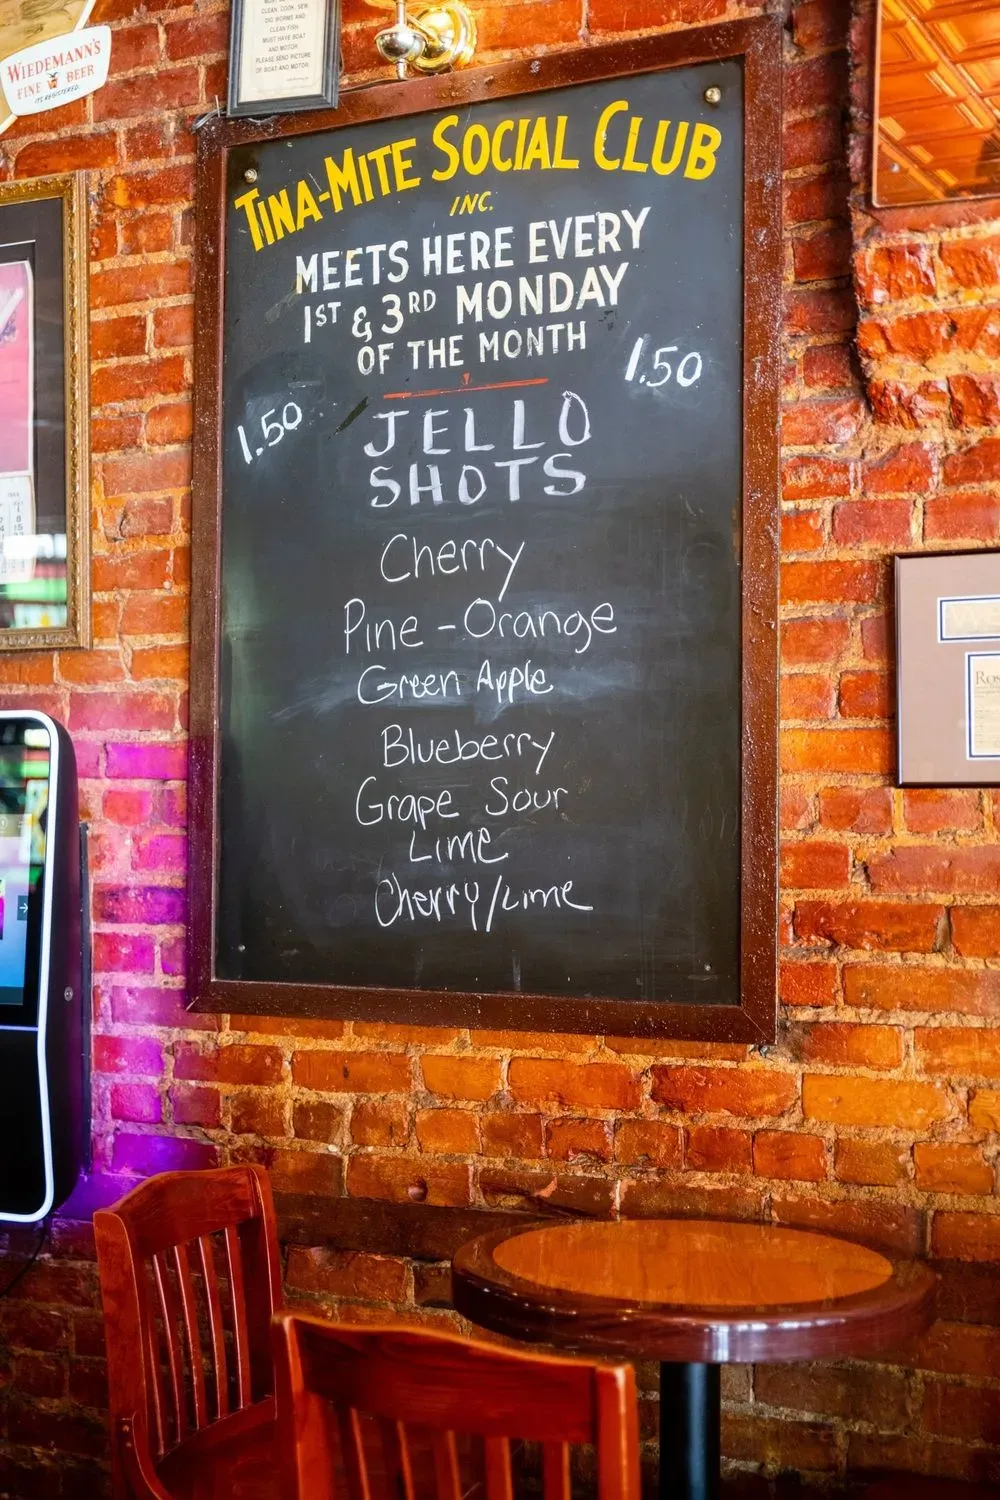 CLEAN, COOK, SEW
DIG WORMS AND
CLEAN FISH
MUST HAVE BOAT
AND MOTOR
PLEASE SEND PICTURE
OF BOAT AND MOTOR.
WIEDEMANN'S
FINE BEER
ITS REGISTERED.
TINA-MITE SOCIAL CLUB
INC.
MEETS HERE EVERY
1ST & 3RD MONDAY
OF THE MONTH
1.50
1.50
JELLO
SHOTS
Cherry
Pine - Orange
Green Apple
Blueberry
Grape Sour
Lime
Cherry/Lime